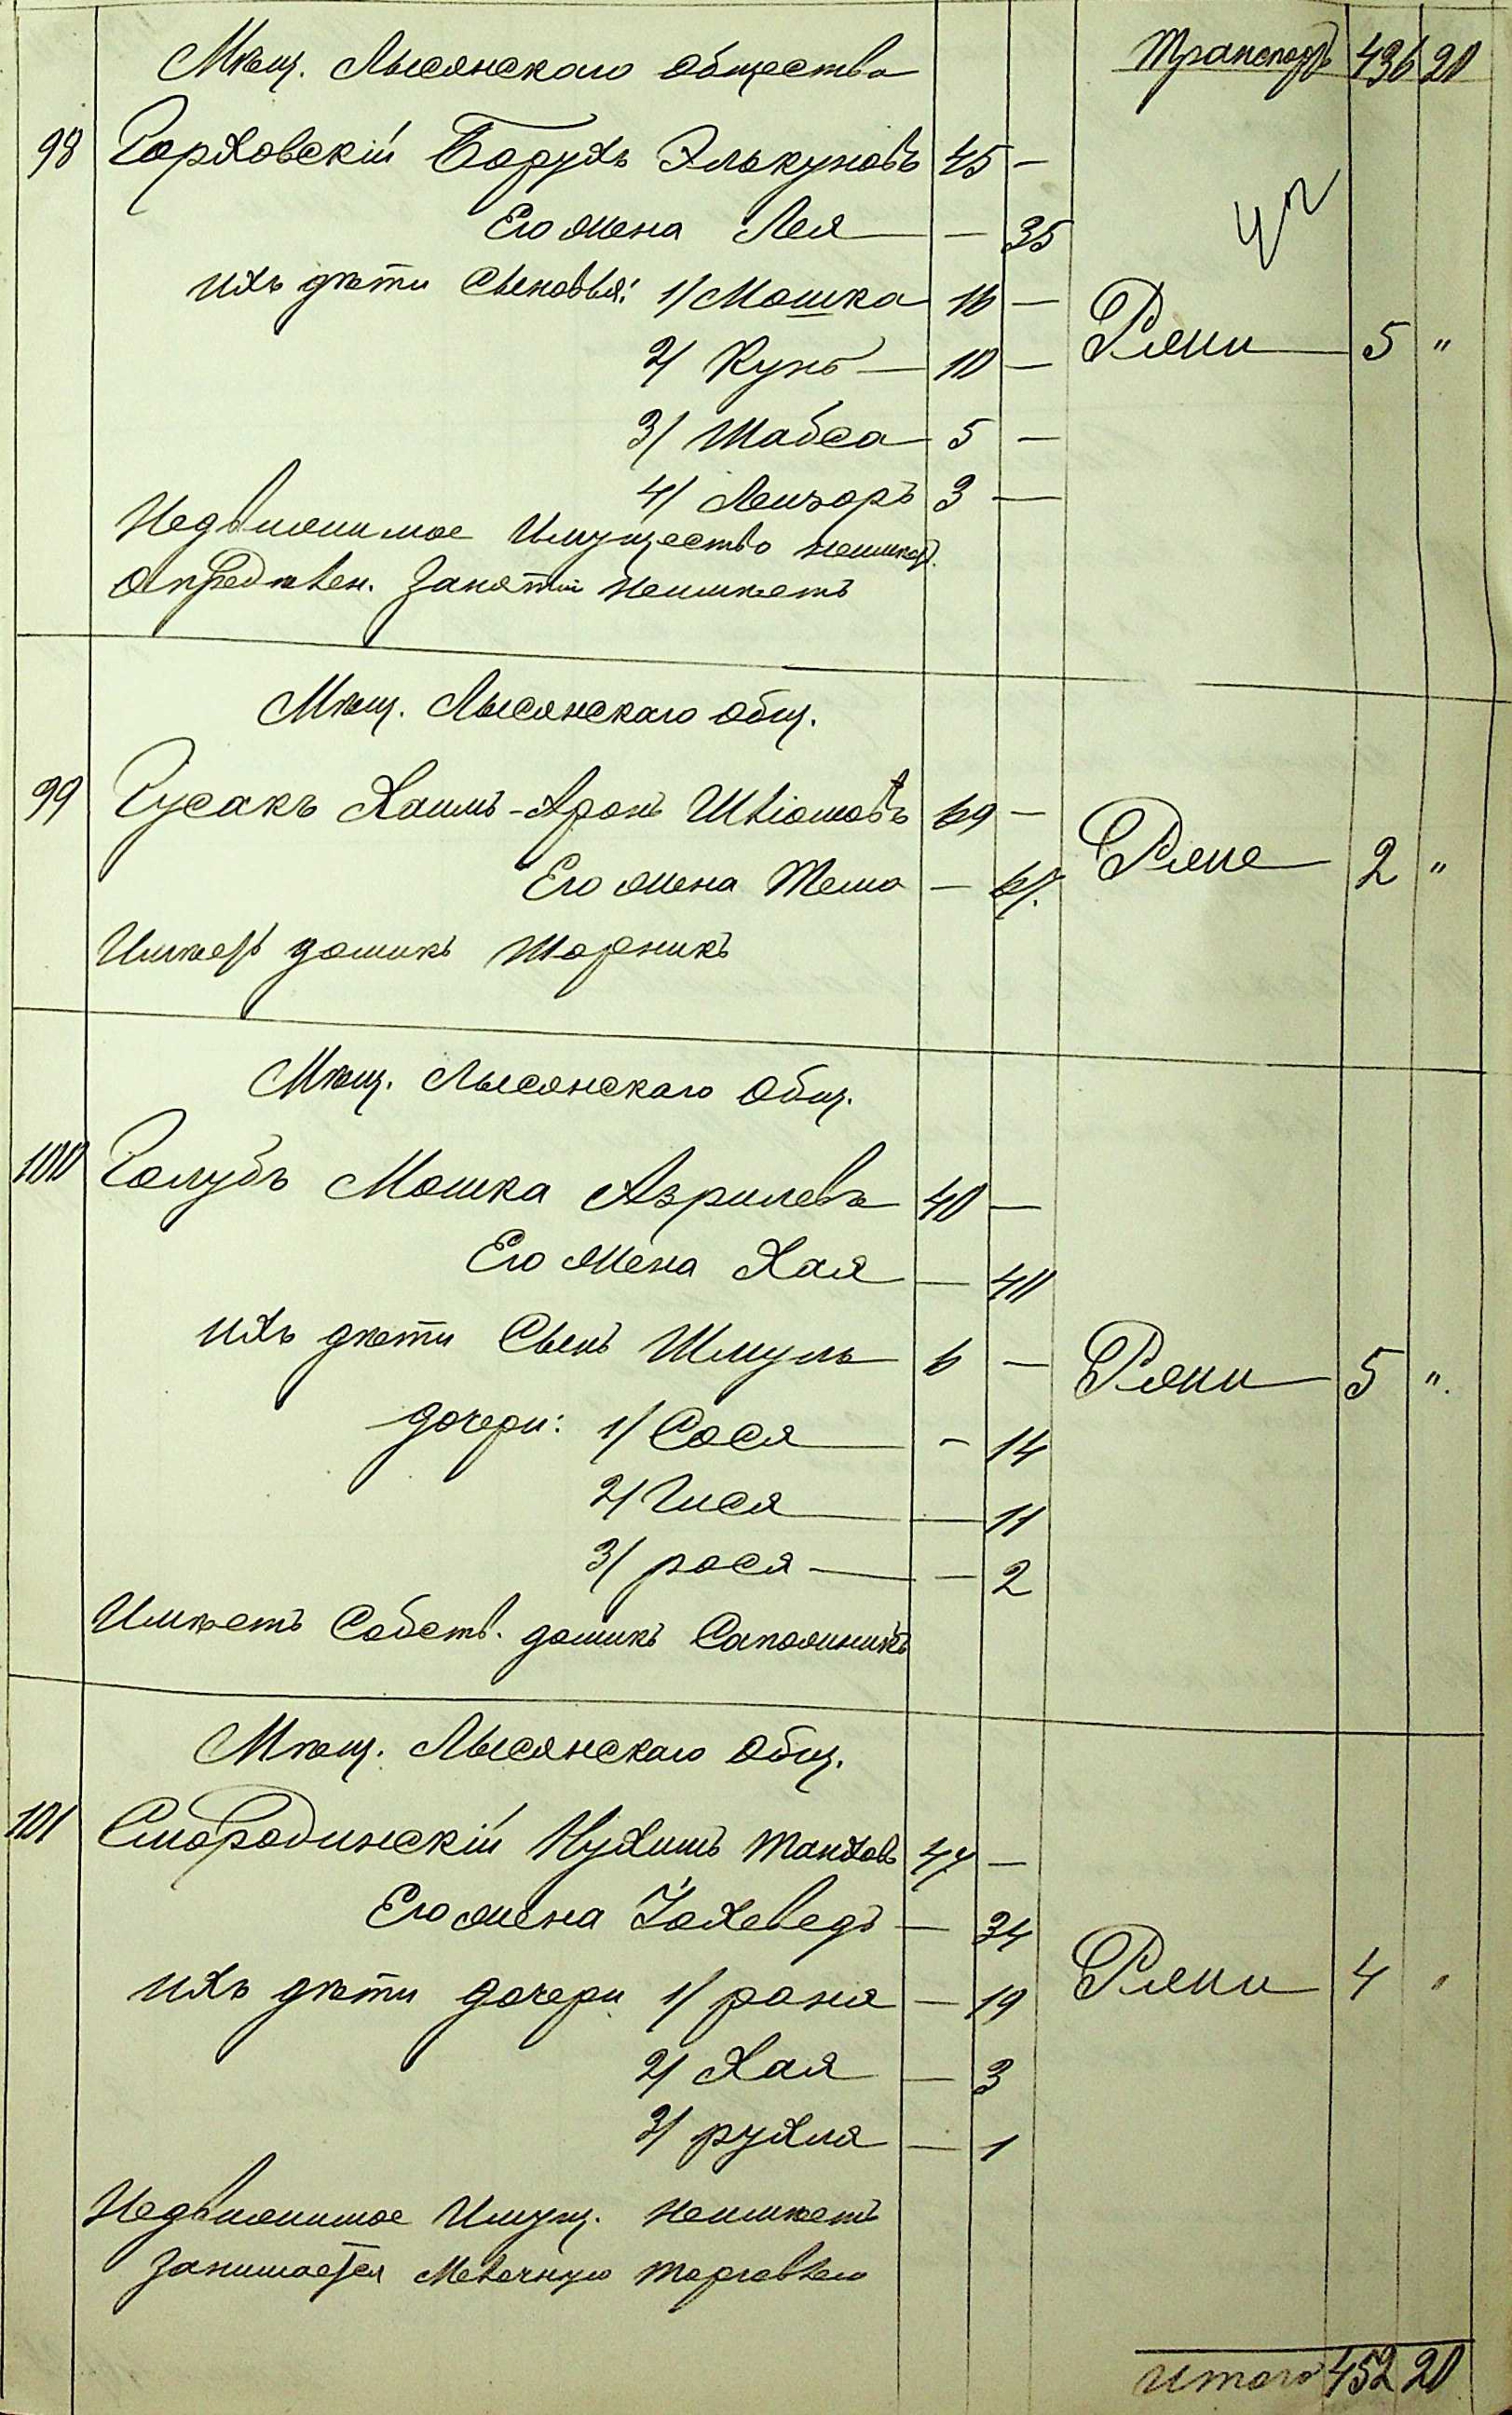 Мѣщ. Лысянскаго общества Транспортъ 436 20
98 Горховскій Борухъ Элькуновъ 45 —
Его жена Лея — 35
ихъ дѣти Сыновья: 1/ Мошка 16 —
2/ Кунъ 10 — Рубли 5 "
3/ Шабса 5 —
4/ Лейзоръ 3 —
Недвижимое Имущество неимѣет.
Опредѣлен. Занятій неимѣетъ
Мѣщ. Лысянскаго общ.
99 Гусакъ Хаимъ-Аронъ Шліомовъ 69 —
Его жена Тема — 67. 2 "
Имѣетъ домикъ Шорникъ
Мѣщ. Лысянскаго Общ.
100 Голубъ Мошка Азрилевъ 40 —
Его жена Хая — 40
ихъ дѣти Сынъ Шмуль 6 — 5 ".
дочери: 1/ Сося — 14
2/ Гися — 11
3/ рося — 2
Имѣетъ Собств. домикъ Сапожникъ
Мѣщ. Лысянскаго Общ.
101 Смородинскій Нухимъ Танховъ 47 —
Его жена Іохеведъ — 34
ихъ дѣти дочери 1/ роня — 19 4 "
2/ Хая — 3
3/ рухля — 1
Недвижимое Имущ. неимѣетъ
Занимается Мелочную торговлею
Итого 452 20